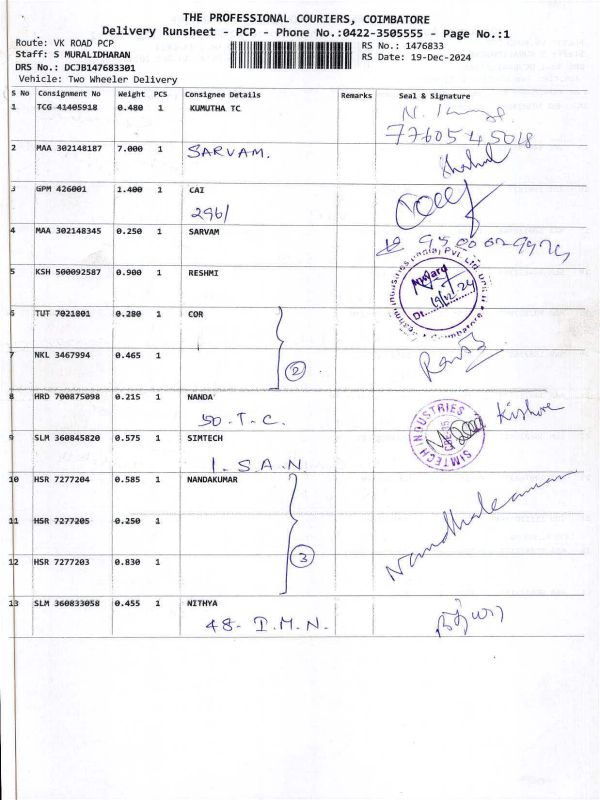 THE PROFESSIONAL COURIERS, COIMBATORE
Delivery Runsheet - PCP - Phone No.:0422-3505555 - Page No.:1
Route: VK ROAD PCP
RS No.: 1476833
Staff: S MURALIDHARAN
RS Date: 19-Dec-2024
DRS No.: DCJB147683301
Vehicle: Two Wheeler Delivery
S No Consignment No Weight PCS Consignee Details Remarks Seal & Signature
1 TCG 41405918 0.480 1 KUMUTHA TC
7760545018
2 MAA 302148187 7.000 1 SARVAM.
3 GPM 426001 1.400 1 CAI
296/
4 MAA 302148345 0.250 1 SARVAM
5 KSH 500092587 0.900 1 RESHMI
19/12/24
6 TUT 7021801 0.280 1 COR
7 NKL 3467994 0.465 1
2
8 HRD 700875098 0.215 1 NANDA
50. T. C.
Kishore
9 SLM 360845820 0.575 1 SIMTECH
SIMTECH INDUSTRIES
1. S. A. N.
10 HSR 7277204 0.585 1 NANDAKUMAR
11 HSR 7277205 0.250 1
Nandhakumar
12 HSR 7277203 0.830 1
3
13 SLM 360833058 0.455 1 NITHYA
நித்யா
48- I. M. N.